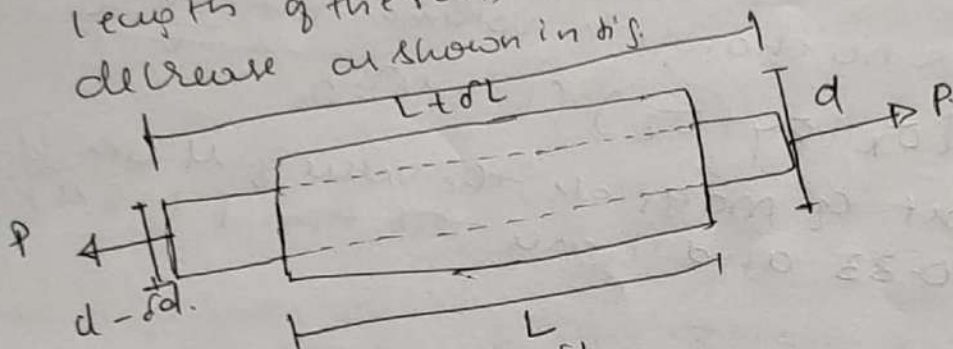 length of the
decrease as shown in fig.
L+δL
d
P
P
d-δd.
L